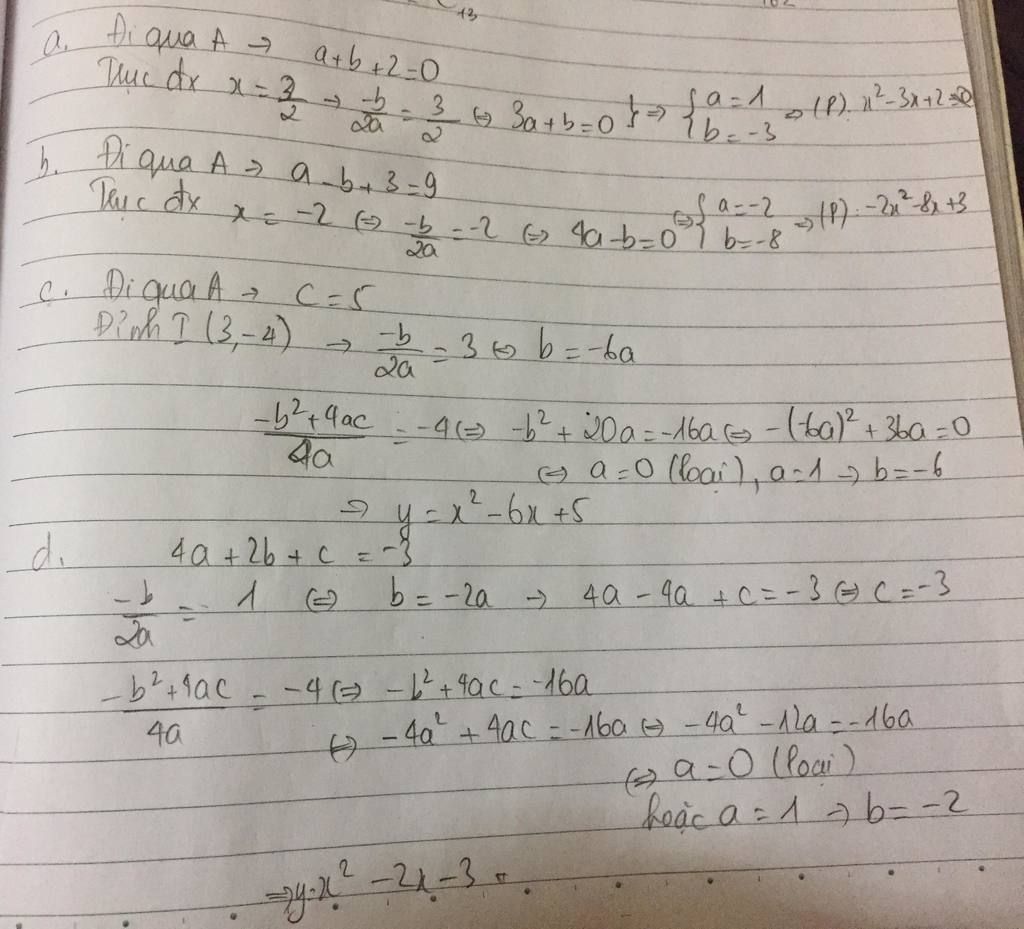 a. Đi qua A → a+b+2=0
Trục đx x = 3/2 → -b/2a = 3/2 ⇔ 3a+b=0 } ⇒ { a=1 b=-3 ⇒ (P): x²-3x+2=0
b. Đi qua A → a-b+3=9
Trục đx x = -2 ⇔ -b/2a = -2 ⇔ 4a-b=0 ⇔ { a=-2 b=-8 ⇒ (P): -2x²-8x+3
c. Đi qua A → c=5
Đỉnh I (3,-4) → -b/2a = 3 ⇔ b=-6a
(-b²+4ac)/4a = -4 ⇔ -b²+20a=-16a ⇔ -(-6a)²+36a=0
⇔ a=0 (loại), a=1 → b=-6
⇒ y=x²-6x+5
d. 4a+2b+c=-3
-b/2a = 1 ⇔ b=-2a → 4a-4a+c=-3 ⇔ c=-3
(-b²+4ac)/4a = -4 ⇔ -b²+4ac=-16a
⇔ -4a²+4ac=-16a ⇔ -4a²-12a=-16a
⇔ a=0 (loại)
hoặc a=1 → b=-2
⇒ y=x²-2x-3